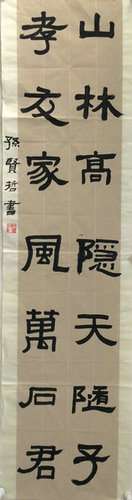 山林高隐天随子
孝友家風萬石君
孫賢哲書